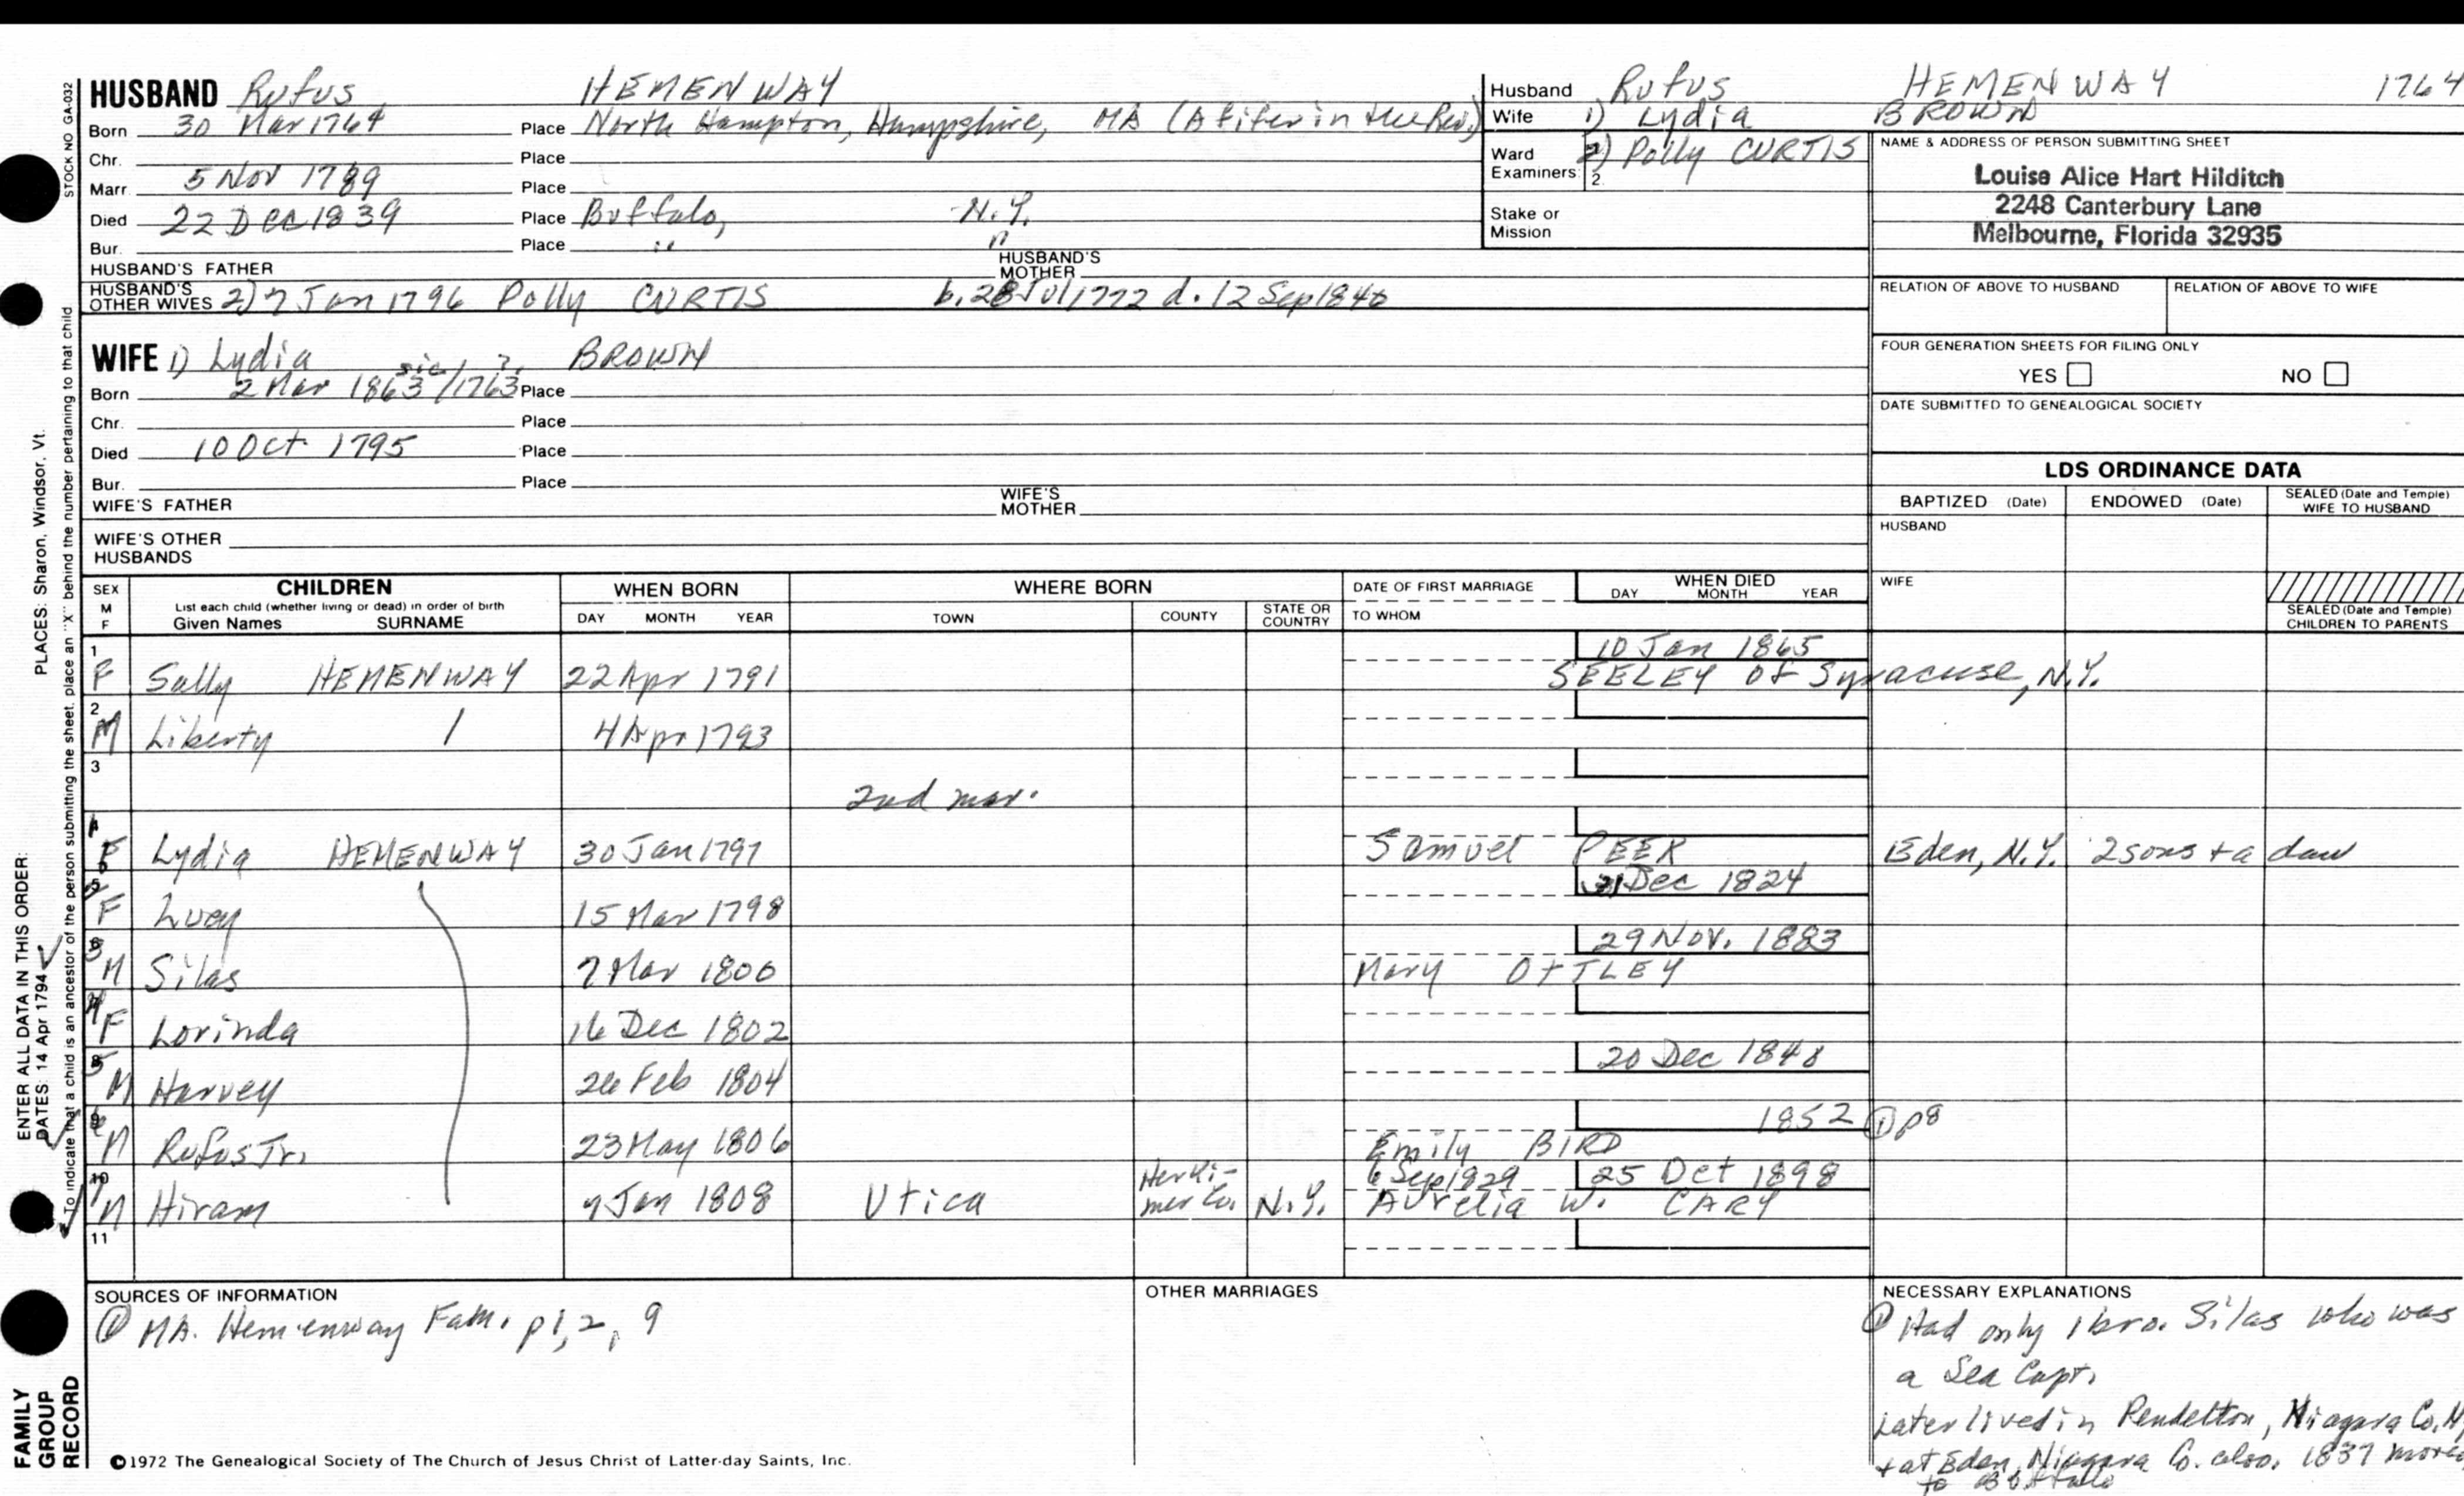 STOCK NO. GA-032
HUSBAND Rufus HEMENWAY
Born 30 Mar 1764 Place North Hampton, Hampshire, MA (A fifer in the Rev.)
Chr. Place
Marr. 5 Nov 1789 Place
Died 22 Dec 1839 Place Buffalo, N.Y.
Bur. Place " "
HUSBAND'S FATHER HUSBAND'S MOTHER
HUSBAND'S OTHER WIVES 2) 7 Jan 1796 Polly CURTIS b. 28 Jul 1772 d. 12 Sep 1846
Husband Rufus HEMENWAY 1764
Wife 1) Lydia BROWN
Ward Examiners: 2) Polly CURTIS
2.
Stake or Mission
NAME & ADDRESS OF PERSON SUBMITTING SHEET
Louise Alice Hart Hilditch
2248 Canterbury Lane
Melbourne, Florida 32935
RELATION OF ABOVE TO HUSBAND RELATION OF ABOVE TO WIFE
FOUR GENERATION SHEETS FOR FILING ONLY
YES NO
DATE SUBMITTED TO GENEALOGICAL SOCIETY
WIFE 1) Lydia BROWN
sic/ ?
Born 2 Mar 1863/1763 Place
Chr. Place
Died 10 Oct 1795 Place
Bur. Place
WIFE'S FATHER WIFE'S MOTHER
WIFE'S OTHER HUSBANDS
LDS ORDINANCE DATA
BAPTIZED (Date) ENDOWED (Date) SEALED (Date and Temple) WIFE TO HUSBAND
HUSBAND
WIFE
SEALED (Date and Temple) CHILDREN TO PARENTS
SEX M F CHILDREN WHEN BORN WHERE BORN DATE OF FIRST MARRIAGE WHEN DIED
List each child (whether living or dead) in order of birth
Given Names SURNAME DAY MONTH YEAR TOWN COUNTY STATE OR COUNTRY TO WHOM DAY MONTH YEAR
1 10 Jan 1865
F Sally HEMENWAY 22 Apr 1791 SEELEY of Syracuse, N.Y.
2
M Liberty / 4 Apr 1793
3
2nd mar.
F Lydia HEMENWAY 30 Jan 1797 Samuel PEER Eden, N.Y. 2 sons + a dau
31 Dec 1824
F Lucy 15 Mar 1798
3 29 Nov. 1883
M Silas 7 Mar 1800 Mary OTTLEY
4
F Lorinda 16 Dec 1802
5 20 Dec 1848
M Harvey 26 Feb 1804
6 1852 ① p8
M Rufus Jr. 23 May 1806 Emily BIRD
7 6 Sep 1829 25 Oct 1898
M Hiram 7 Jan 1808 Utica Herki-mer Co. N.Y. Aurelia W. CARY
11
SOURCES OF INFORMATION
① MA. Hemenway Fam. p 1, 2, 9
OTHER MARRIAGES
NECESSARY EXPLANATIONS
① Had only 1 bro. Silas who was
a Sea Capt.
Later lived in Pendelton, Niagara Co, N
+ at Eden, Niagara Co. also. 1837 moved
to Buffalo
ENTER ALL DATA IN THIS ORDER:
DATES: 14 Apr 1794 PLACES: Sharon, Windsor, Vt.
To indicate that a child is an ancestor of the person submitting the sheet, place an "X" behind the number pertaining to that child
FAMILY GROUP RECORD
©1972 The Genealogical Society of The Church of Jesus Christ of Latter-day Saints, Inc.